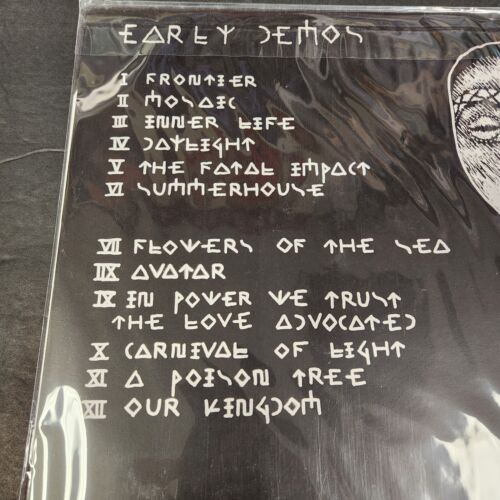 EARLY DEMOS
I FRONTIER
II MOSAIC
III INNER LIFE
IV DAYLIGHT
V THE FATAL IMPACT
VI SUMMERHOUSE
VII FLOWERS OF THE SEA
IIX AVATAR
IV IN POWER WE TRUST
THE LOVE ADVOCATED
X CARNIVAL OF LIGHT
XI A POISON TREE
XII OUR KINGDOM